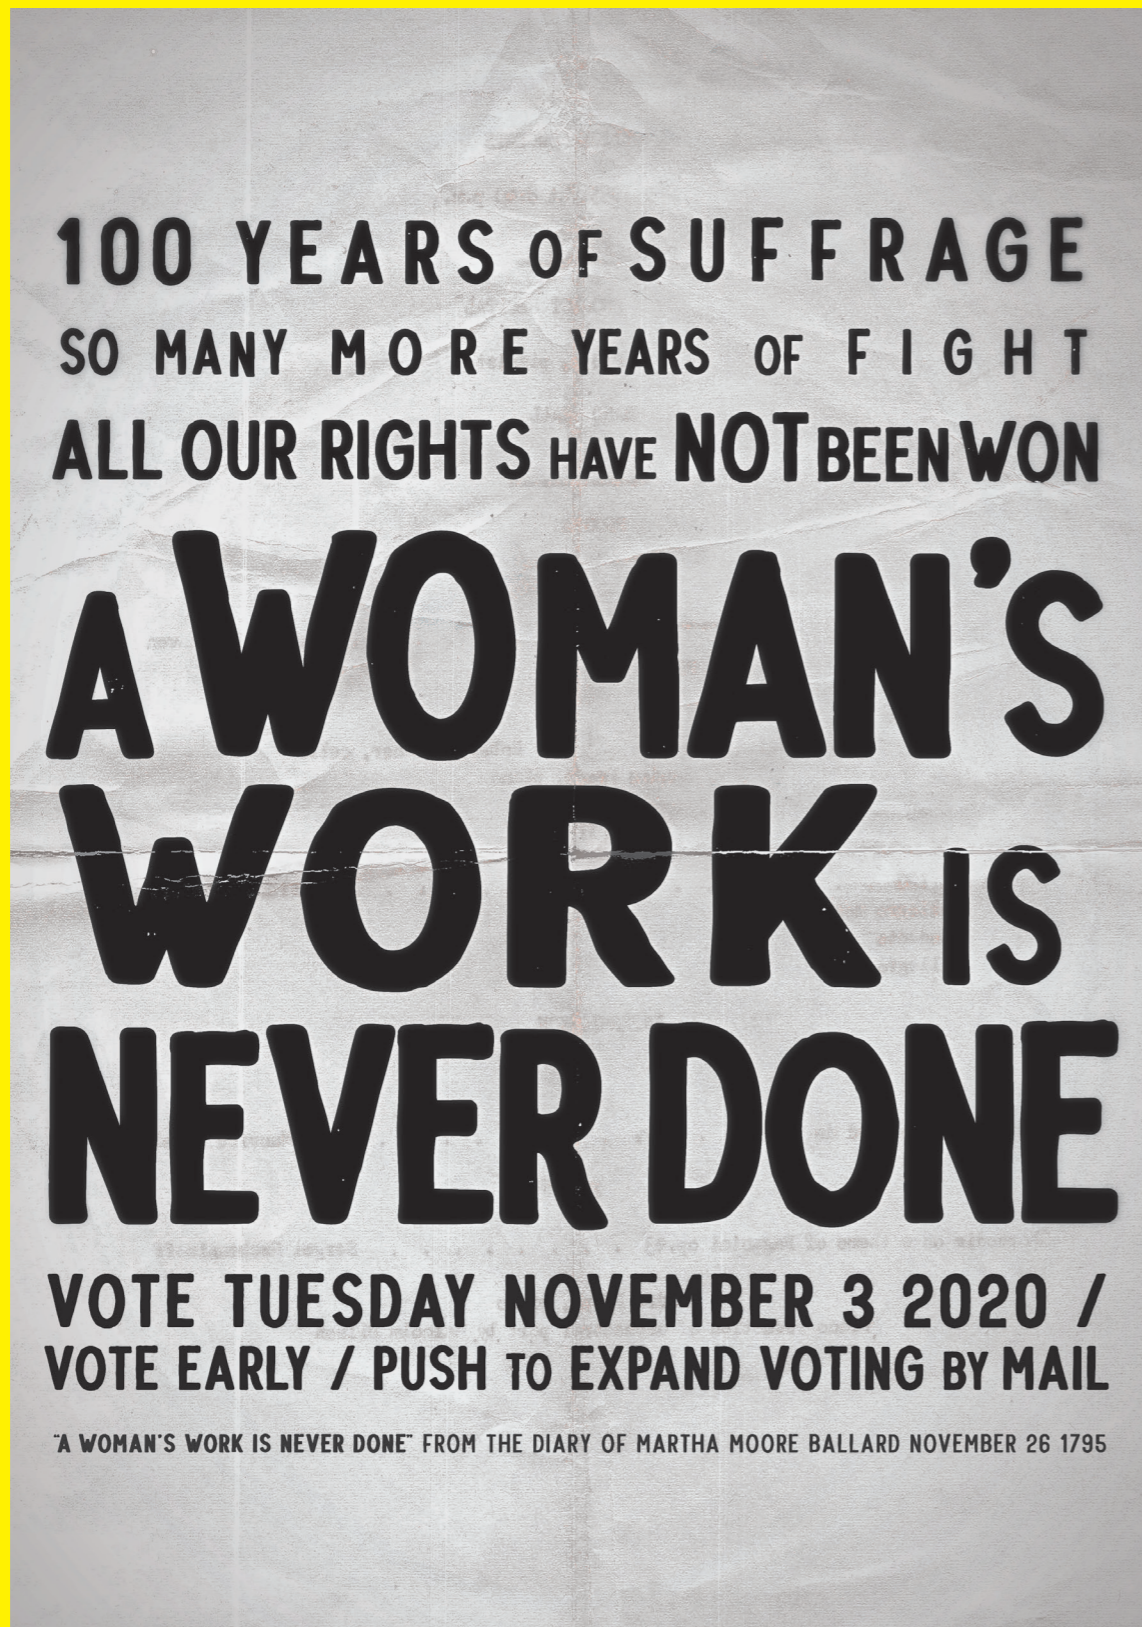 100 YEARS OF SUFFRAGE
SO MANY MORE YEARS OF FIGHT
ALL OUR RIGHTS HAVE NOT BEEN WON
A WOMAN'S
WORK IS
NEVER DONE
VOTE TUESDAY NOVEMBER 3 2020 /
VOTE EARLY / PUSH TO EXPAND VOTING BY MAIL
"A WOMAN'S WORK IS NEVER DONE" FROM THE DIARY OF MARTHA MOORE BALLARD NOVEMBER 26 1795